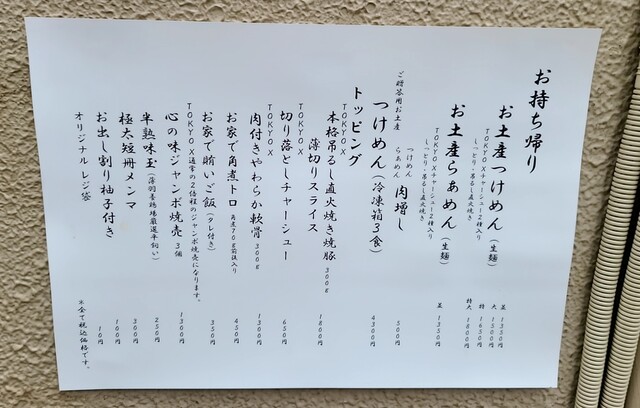 お持ち帰り
お土産つけめん（生麺） 並 1350円
大 1500円
特 1650円
特大 1800円
TOKYO X チャーシュー2種入り
しっとり・吊るし直火焼き
お土産らぁめん（生麺） 並 1350円
TOKYO X チャーシュー2種入り
しっとり・吊るし直火焼き
つけめん
らぁめん 肉増し 500円
ご贈答用お土産
つけめん（冷凍箱3食） 4300円
トッピング
TOKYO X
本格吊るし直火焼き焼豚 300g 1800円
薄切りスライス
TOKYO X
切り落としチャーシュー 650円
TOKYO X
肉付きやわらか軟骨 300g 1300円
お家で角煮トロ 角煮70g前後入り 450円
お家で賄いご飯（タレ付き） 350円
TOKYO X 通常の2倍程のジャンボ焼売になります。
心の味ジャンボ焼売 3個 1300円
半熟味玉（薄羽養鶏場厳選平飼い） 250円
極太短冊メンマ 300円
お出し割り柚子付き 100円
オリジナル レジ袋 10円
※全て税込価格です。